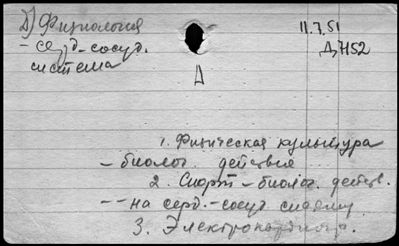 Д) Физиология
- серд.-сосуд.
система
11.7.51
Д
1. Физическая культура
- биолог. действие
2. Спорт - биолог. действ.
-- на серд.-сосуд. систему
3. Электрокардиогр.